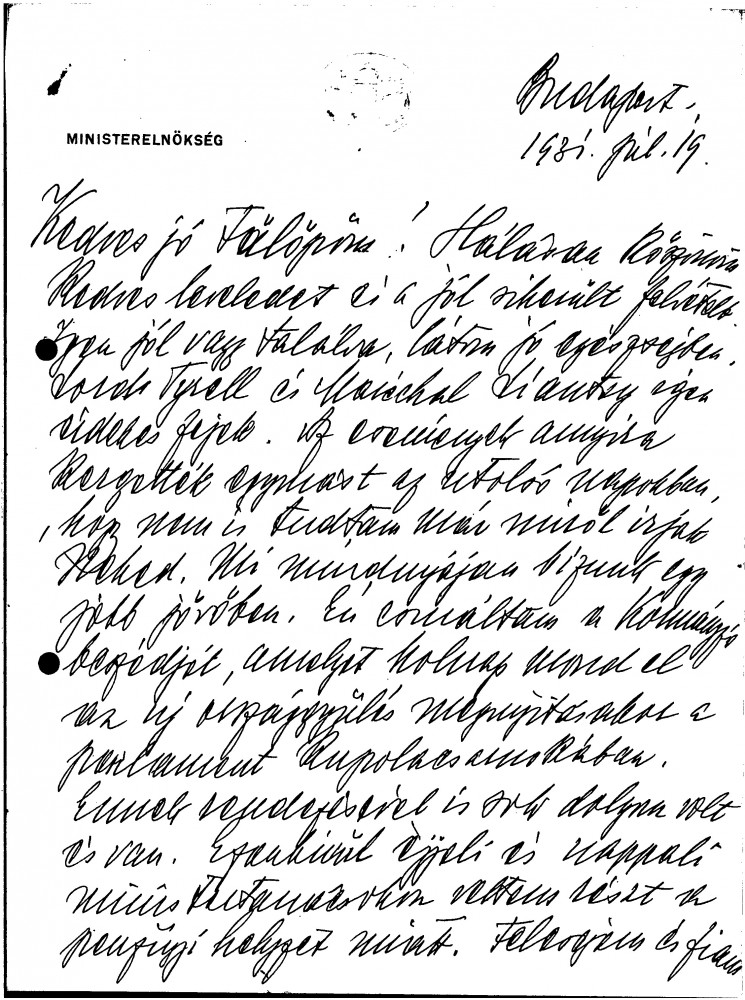 MINISTERELNÖKSÉG
Budapest,
1931. júl. 19.
Kedves jó Fülöpöm! Hálásan köszönöm
kedves leveledet és a jól sikerült felvételt.
Igen jól vagy találva, látom jó egészségben.
Lords Tyrell és Maréchal Liautey igen
érdekes fejek. Az események annyira
kergették egymást az utolsó napokban,
hogy nem is tudtam már miről írjak
Neked. Mi mindnyájan bízunk egy
jobb jövőben. Én csináltam a Kormányzó
beszédjét, amelyet holnap mond el
az új országgyűlés megnyitásakor a
parlament kupolacsarnokában.
Ennek rendezésével is sok dolgom volt
és van. Ezenkívül éjjeli és nappali
minisztertanácsokon vettem részt a
pénzügyi helyzet miatt. Feleségem és fiam